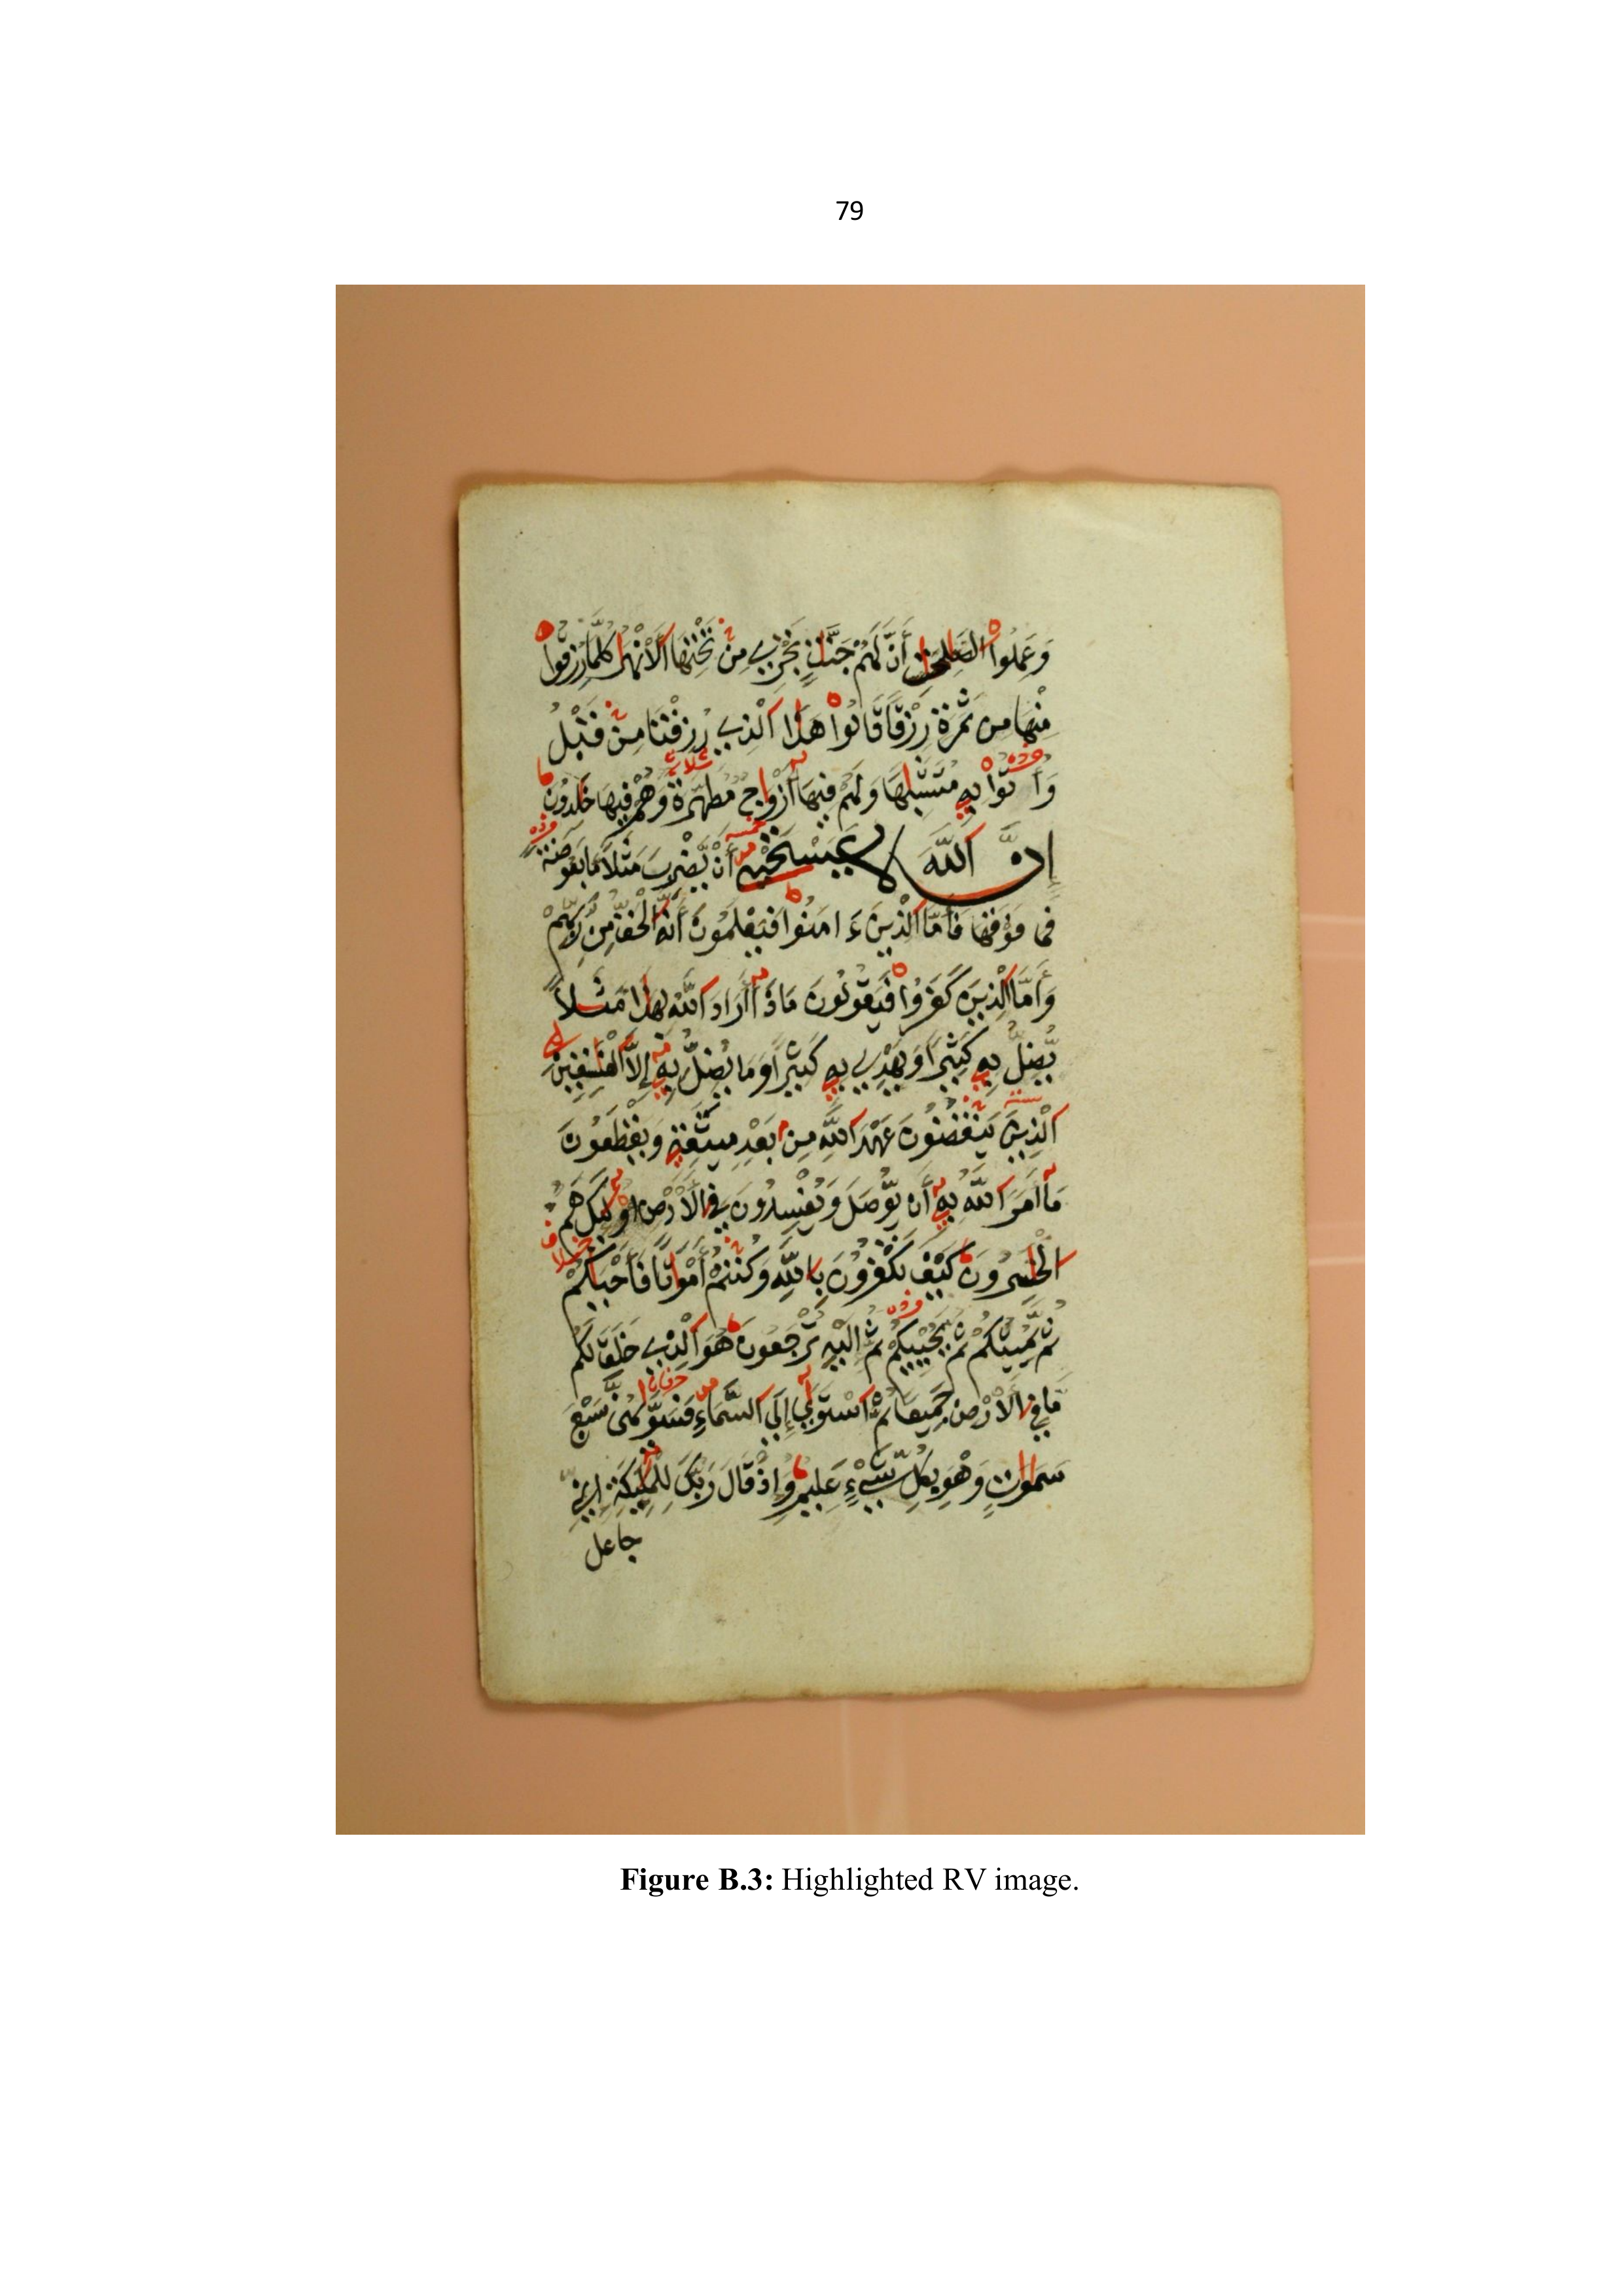 79
وَعَمِلُواْ الصَّٰلِحَٰتِ أَنَّ لَهُمْ جَنَّٰتٍ تَجْرِے مِن تَحْتِهَا اَلَانْهَٰرُ كُلَّمَا رُزِقُواْ
مِنْهَا مِن ثَمَرَةٖ رِّزْقاً قَالُواْ هَٰذَا اَلذِے رُزِقْنَا مِن قَبْلُ
وَأُتُواْ بِهِۦ مُتَشَٰبِهاً وَلَهُمْ فِيهَا أَزْوَٰجٞ مُّطَهَّرَةٞ وَهُمْ فِيهَا خَٰلِدُونَ
إِنَّ اَللَّهَ لَا يَسْتَحْيِۦ أَنْ يَّضْرِبَ مَثَلاً مَّا بَعُوضَةً
فَمَا فَوْقَهَا فَأَمَّا اَلذِينَ ءَامَنُواْ فَيَعْلَمُونَ أَنَّهُ اُلْحَقُّ مِن رَّبِّهِمْ
وَأَمَّا اَلذِينَ كَفَرُواْ فَيَقُولُونَ مَاذَا أَرَادَ اَللَّهُ بِهَٰذَا مَثَلاً
يُضِلُّ بِهِۦ كَثِيراً وَيَهْدِے بِهِۦ كَثِيراً وَمَا يُضِلُّ بِهِۦ إِلَّا اَلْفَٰسِقِينَ
اَلذِينَ يَنقُضُونَ عَهْدَ اَللَّهِ مِن بَعْدِ مِيثَٰقِهِۦ وَيَقْطَعُونَ
مَا أَمَرَ اَللَّهُ بِهِۦ أَنْ يُّوصَلَ وَيُفْسِدُونَ فِے اِلَارْضِ أُوْلَٰئِكَ هُمُ
اُلْخَٰسِرُونَ كَيْفَ تَكْفُرُونَ بِاللَّهِ وَكُنتُمْ أَمْوَٰتاً فَأَحْيَٰكُمْ
ثُمَّ يُمِيتُكُمْ ثُمَّ يُحْيِيكُمْ ثُمَّ إِلَيْهِ تُرْجَعُونَ هُوَ اَلذِے خَلَقَ لَكُم
مَّا فِے اِلَارْضِ جَمِيعاً ثُمَّ اَسْتَوَىٰ إِلَى اَلسَّمَاءِ فَسَوَّىٰهُنَّ سَبْعَ
سَمَٰوَٰتٍ وَهْوَ بِكُلِّ شَےْءٍ عَلِيمٞ وَإِذْ قَالَ رَبُّكَ لِلْمَلَٰئِكَةِ إِنِّے
جاعل
Figure B.3: Highlighted RV image.